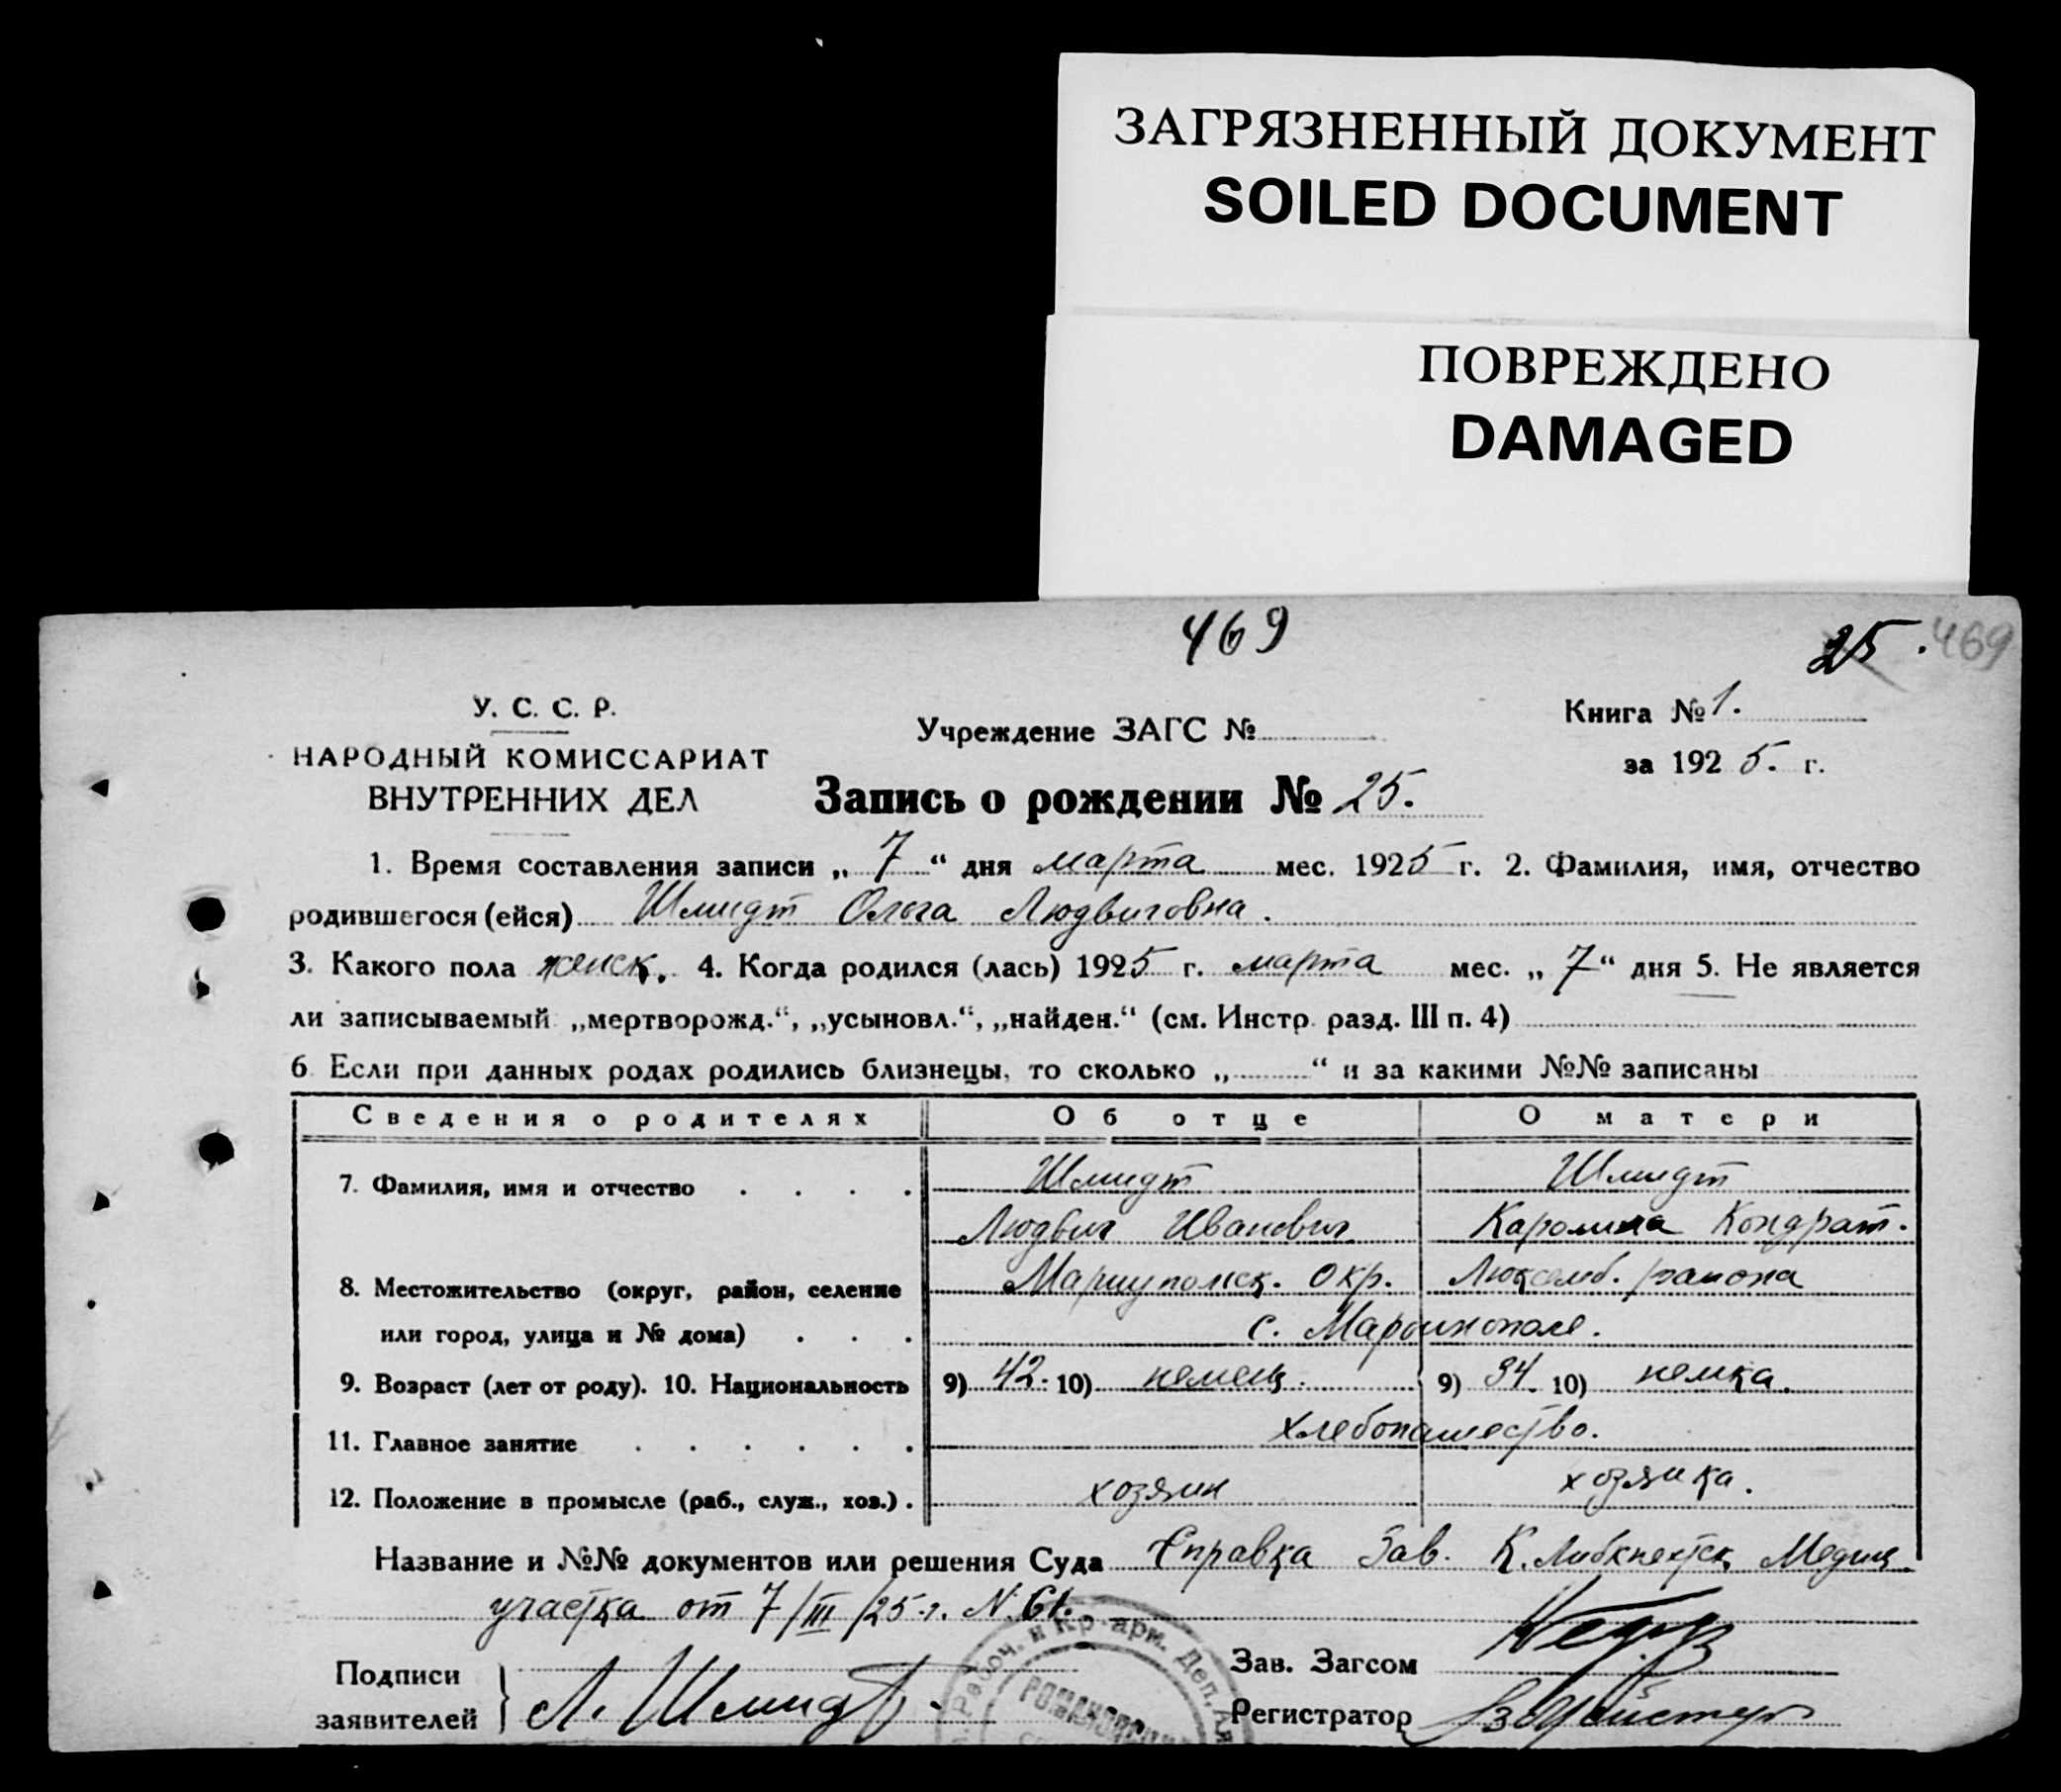 ЗАГРЯЗНЕННЫЙ ДОКУМЕНТ
SOILED DOCUMENT
ПОВРЕЖДЕНО
DAMAGED
469
25. 469
У. С. С. Р.
НАРОДНЫЙ КОМИССАРИАТ
ВНУТРЕННИХ ДЕЛ
Учреждение ЗАГС №
Книга № 1.
за 1925. г.
Запись о рождении № 25.
1. Время составления записи „ 7 “ дня марта мес. 1925 г. 2. Фамилия, имя, отчество
родившегося (ейся) Шмидт Ольга Людвиговна.
3. Какого пола женск. 4. Когда родился (лась) 1925 г. марта мес. „ 7 “ дня 5. Не является
ли записываемый „мертворожд.“, „усыновл.“, „найден.“ (см. Инстр. разд. III п. 4)
6. Если при данных родах родились близнецы, то сколько „ “ и за какими №№ записаны
Сведения о родителях Об отце О матери
7. Фамилия, имя и отчество . . . . Шмидт Шмидт
Людвиг Иванович Каролина Кондрат.
8. Местожительство (округ, район, селение Мариупольск. окр. Люксемб. района
или город, улица и № дома) . . . с. Мариинополе.
9. Возраст (лет от роду). 10. Национальность 9) 42. 10) немец. 9) 34. 10) немка.
11. Главное занятие . . . . . . хлебопашество.
12. Положение в промысле (раб., служ., хоз.) . хозяин хозяйка.
Название и №№ документов или решения Суда Справка Зав. К. Либкнехтск. Медиц.
участка от 7/III/25 г. N. 61.
Раб оч. и Кр-арм. Деп.
Подписи
заявителей
Л. Шмидт.
Зав. Загсом
Регистратор